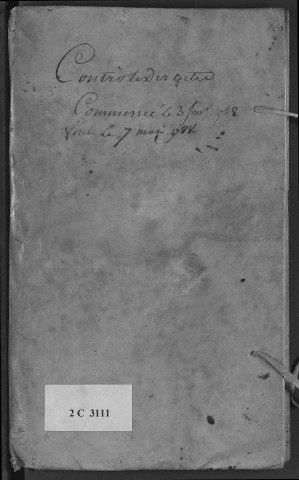 Contrôle des actes
Commencé le 3 janv. 788
finit le 7 mai 788
2 C 3111